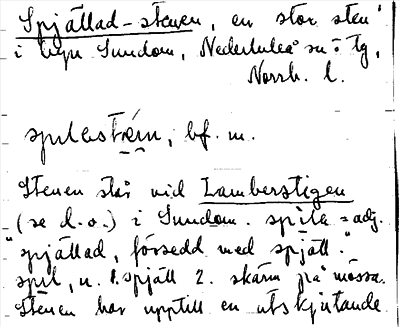 Spjällad-stenen, en stor sten
i byn Sundom, Nederluleå sn o tg,
Norrb. l.
spılestém, bf. m.
Stenen står vid Lamberstigen
(se d.o.) i Sundom. spila = adj.
"spjällad, försedd med spjäll."
spil, n. 1. spjäll 2. skärm på mössa.
Stenen har upptill en utskjutande